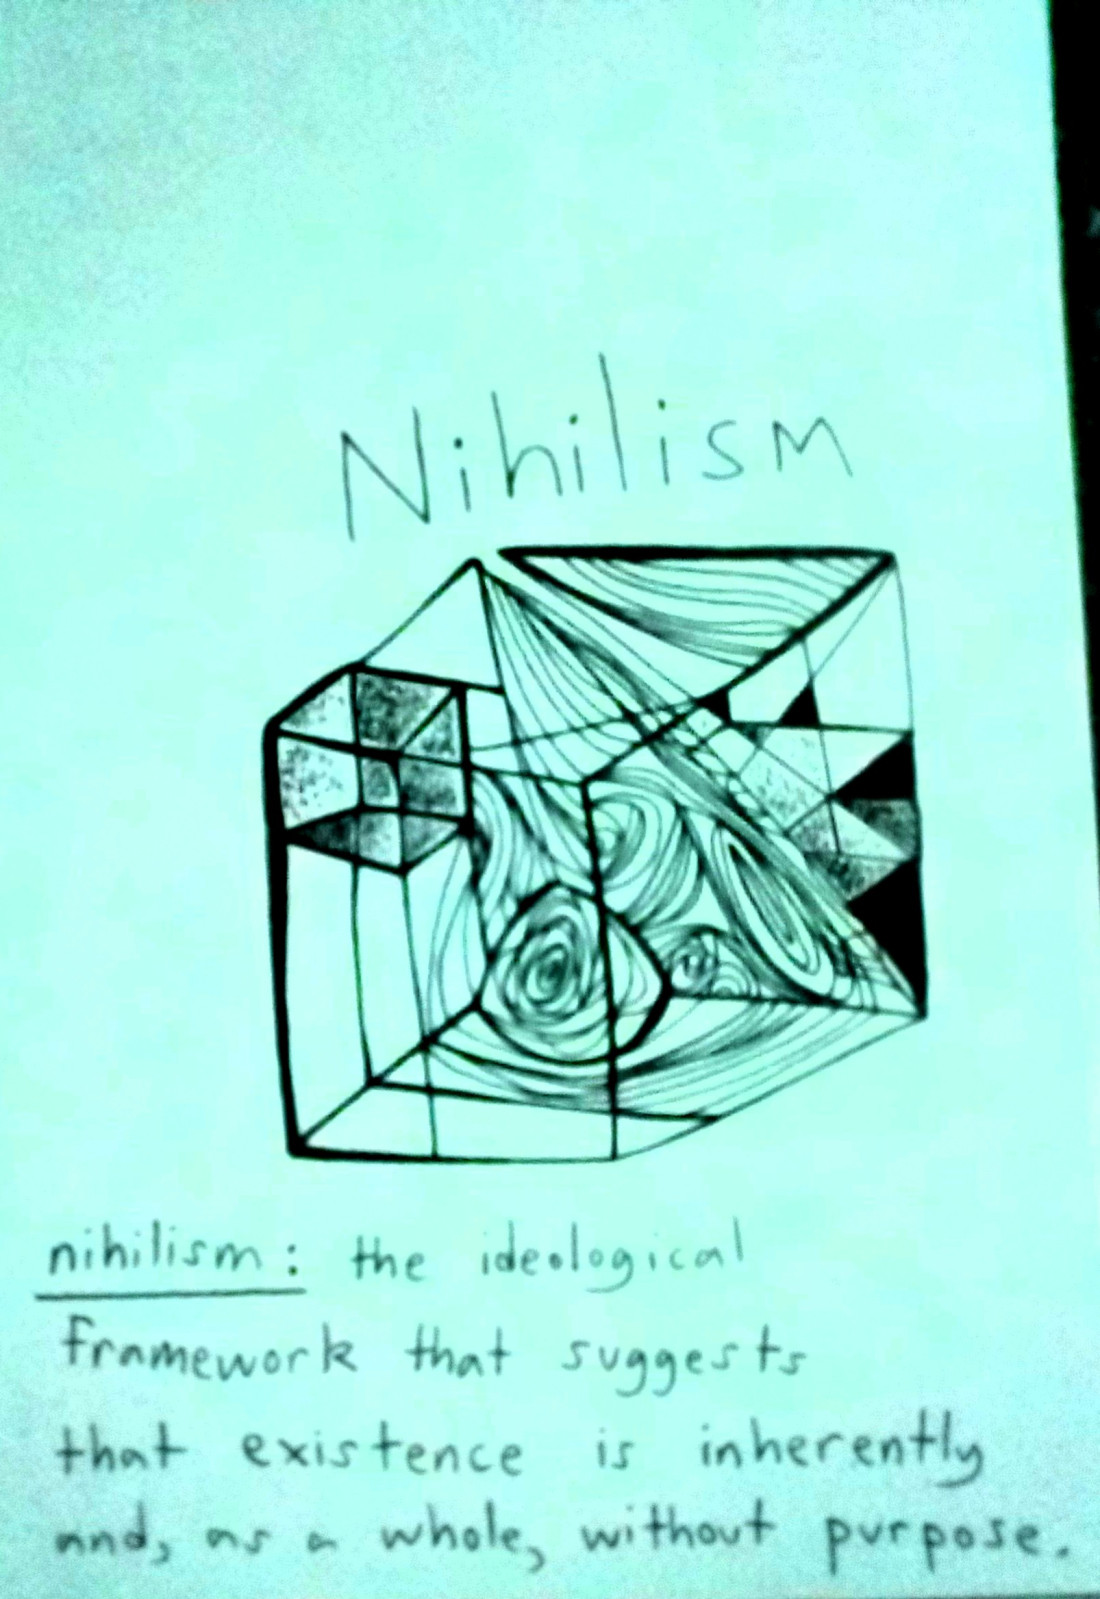 Nihilism
nihilism: the ideological
framework that suggests
that existence is inherently
and, as a whole, without purpose.